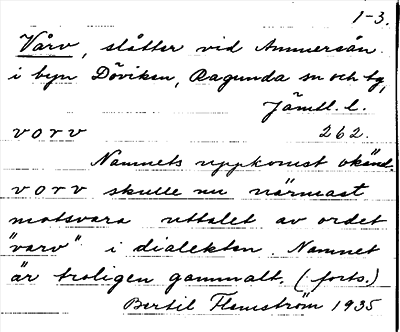 1-3.
Vårv, slåtter vid Ammersån.
i byn Döviken, Ragunda sn och tg,
Jämtl. l.
vorv 262.
Namnets uppkomst okänd.
vorv skulle nu närmast
motsvara uttalet av ordet
"varv" i dialekten. Namnet
är troligen gammalt. (forts.)
Bertil Flemström 1935